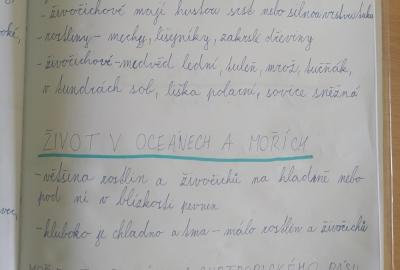 - živočichové mají hustou srst nebo silnou vrstvu tuku
- rostliny - mechy, lišejníky, zakrslé dřeviny
- živočichové - medvěd lední, tuleň, mrož, tučňák,
v tundrách sob, liška polární, sovice sněžná
ŽIVOT V OCEÁNECH A MOŘÍCH
- většina rostlin a živočichů na hladině nebo
pod ní v blízkosti pevnin
- hluboko je chladno a tma - málo rostlin a živočichů